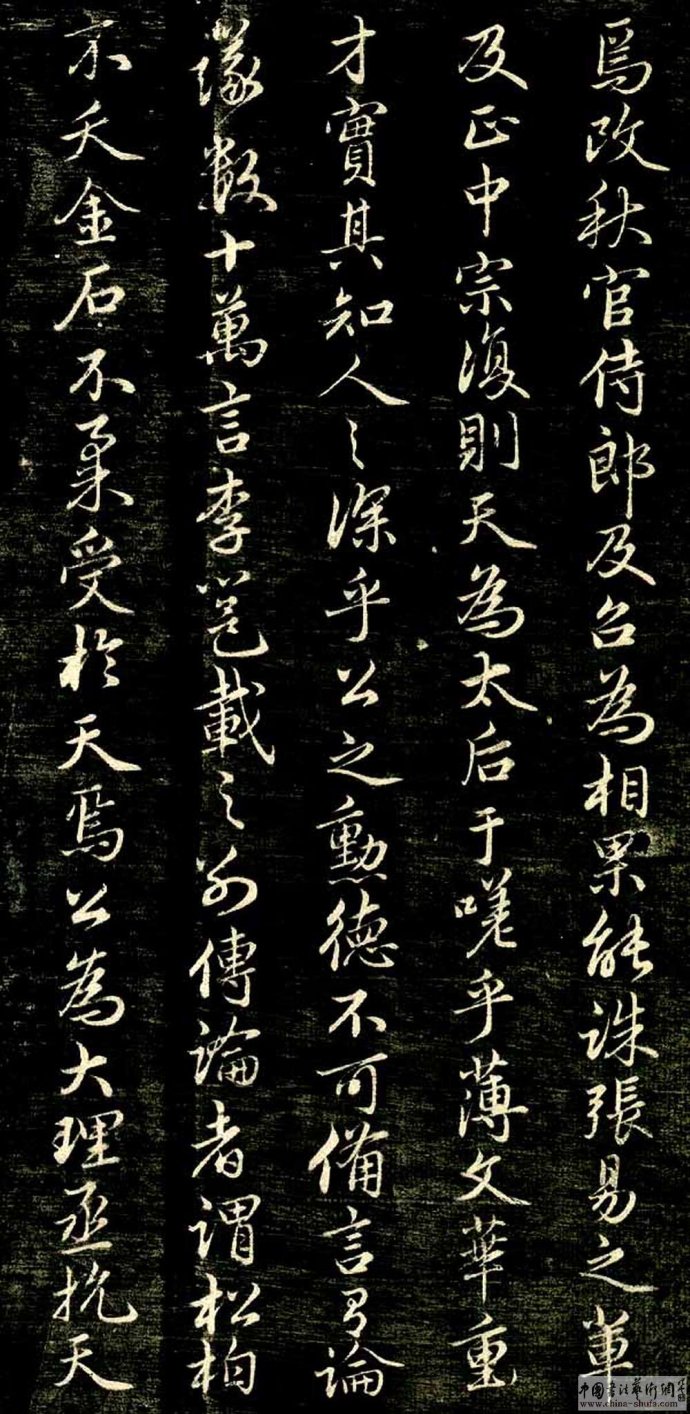 焉改秋官侍郎及召為相果能誅張易之輩
及正中宗復則天為太后于嘆乎薄文華重
才實其知人之深乎公之勳德不可備言有論
議数十萬言李邕載之別傳論者謂松柏
不夭金石不柔受於天焉公為大理丞抗天
中国书法艺术網
www.china-shufa.com